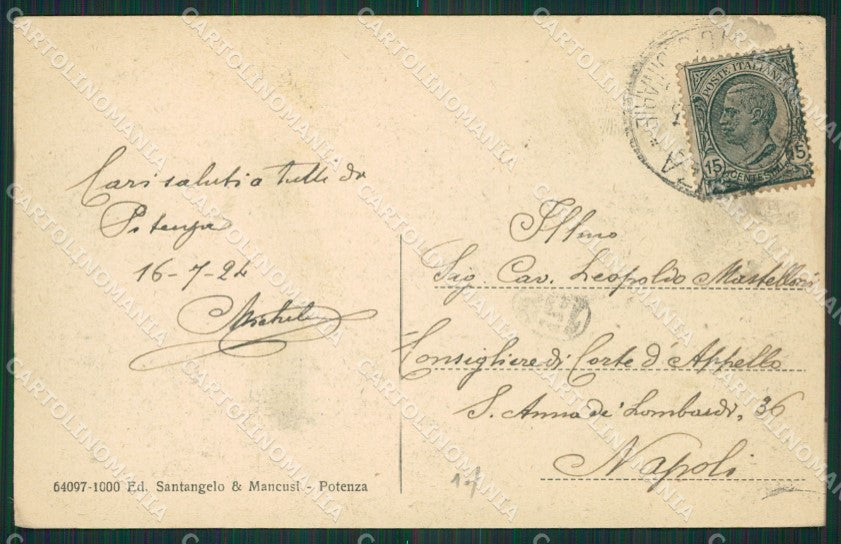 Cari saluti a tutti da
Potenza
16-7-24
Michele
Illmo
Sig. Cav. Leopoldo Mastelloni
Consigliere di Corte d'Appello
S. Anna dei Lombardi, 36
Napoli
POSTE ITALIANE
15 CENTESIMI 15
64097-1000 Ed. Santangelo & Mancusi - Potenza
17
CARTOLINOMANIA